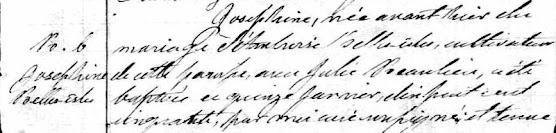 Josephine, née avant hier du
No. 6 mariage d'Ambroise Belles-isles, cultivateur
Josephine de cette paroisse, avec Julie Beaulieu, a été
Belles-isles baptisée ce quinze Janvier, dix huit cent
soixante, par moi curé soussigné et tenue